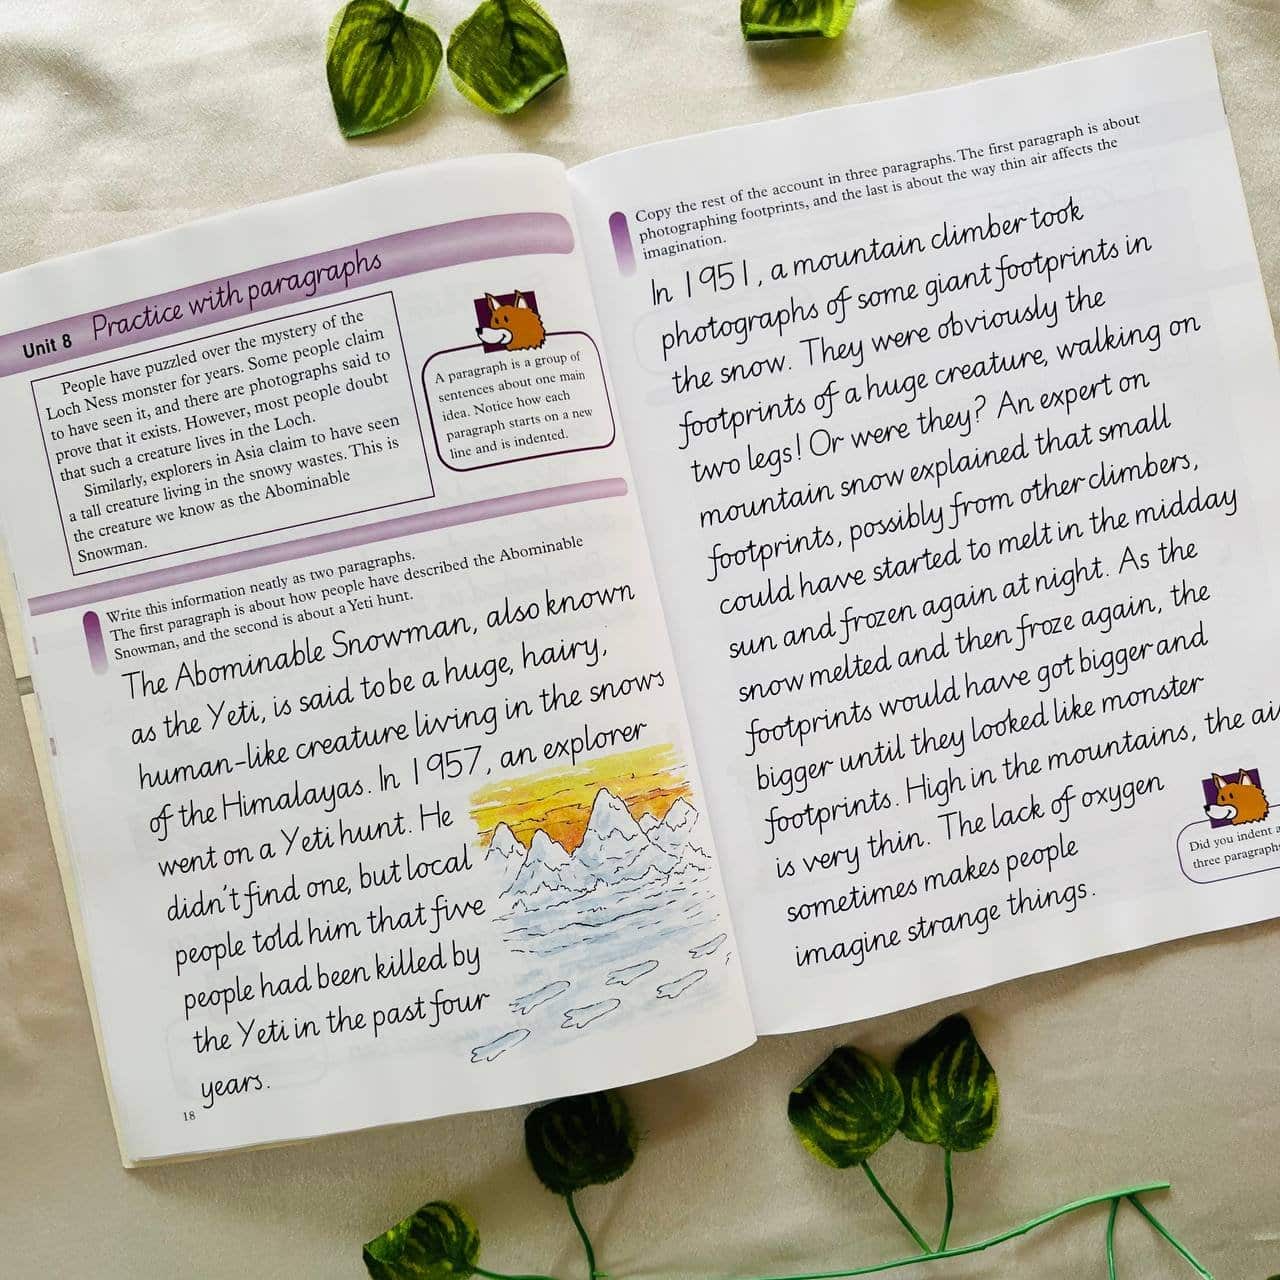 Unit 8 Practice with paragraphs
People have puzzled over the mystery of the
Loch Ness monster for years. Some people claim
to have seen it, and there are photographs said to
prove that it exists. However, most people doubt
that such a creature lives in the Loch.
Similarly, explorers in Asia claim to have seen
a tall creature living in the snowy wastes. This is
the creature we know as the Abominable
Snowman.
A paragraph is a group of
sentences about one main
idea. Notice how each
paragraph starts on a new
line and is indented.
Write this information neatly as two paragraphs.
The first paragraph is about how people have described the Abominable
Snowman, and the second is about a Yeti hunt.
The Abominable Snowman, also known
as the Yeti, is said to be a huge, hairy,
human-like creature living in the snows
of the Himalayas. In 1957, an explorer
went on a Yeti hunt. He
didn't find one, but local
people told him that five
people had been killed by
the Yeti in the past four
years.
18
Copy the rest of the account in three paragraphs. The first paragraph is about
photographing footprints, and the last is about the way thin air affects the
imagination.
In 1951, a mountain climber took
photographs of some giant footprints in
the snow. They were obviously the
footprints of a huge creature, walking on
two legs! Or were they? An expert on
mountain snow explained that small
footprints, possibly from other climbers,
could have started to melt in the midday
sun and frozen again at night. As the
snow melted and then froze again, the
footprints would have got bigger and
bigger until they looked like monster
footprints. High in the mountains, the air
is very thin. The lack of oxygen
sometimes makes people
imagine strange things.
Did you indent
three paragraphs